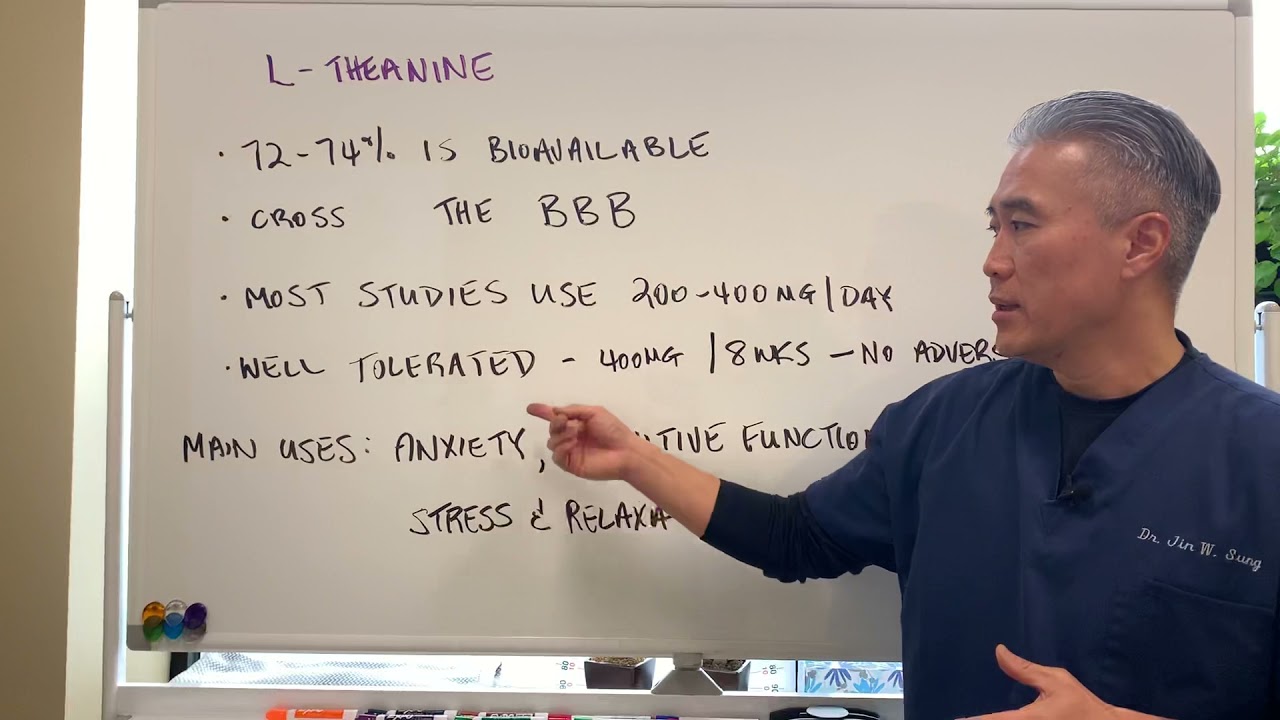 L-THEANINE
· 72-74% IS BIOAVAILABLE
· CROSS THE BBB
· MOST STUDIES USE 200-400MG/DAY
· WELL TOLERATED - 400MG /8WKS - NO ADVERS
MAIN USES: ANXIETY, ITIVE FUNCTIO
STRESS & RELAXA
Dr. Jin W. Sung